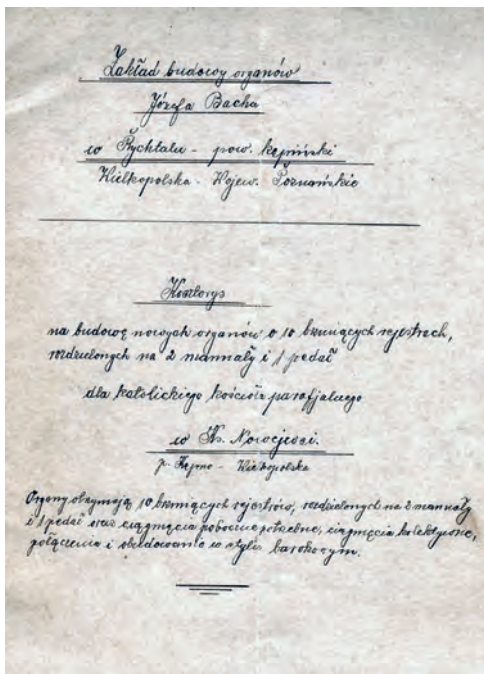 Zakład budowy organów
Józefa Bacha
w Rychtalu - pow. kępiński
Wielkopolska - Wojew. Poznańskie
Kosztorys
na budowę nowych organów o 10 brzmiących rejestrach,
rozdzielonych na 2 mannały i 1 pedał
dla katolickiego kościoła parafjalnego
w Ks. Nowejwsi.
p. Kępno - Wielkopolska
Organy otrzymają 10 brzmiących rejestrów, rozdzielonych na 2 mannały
i 1 pedał oraz ciągnięcia poboczne potrzebne, ciągnięcia kolektywne,
połączenia i obudowanie w stylu barokowym.